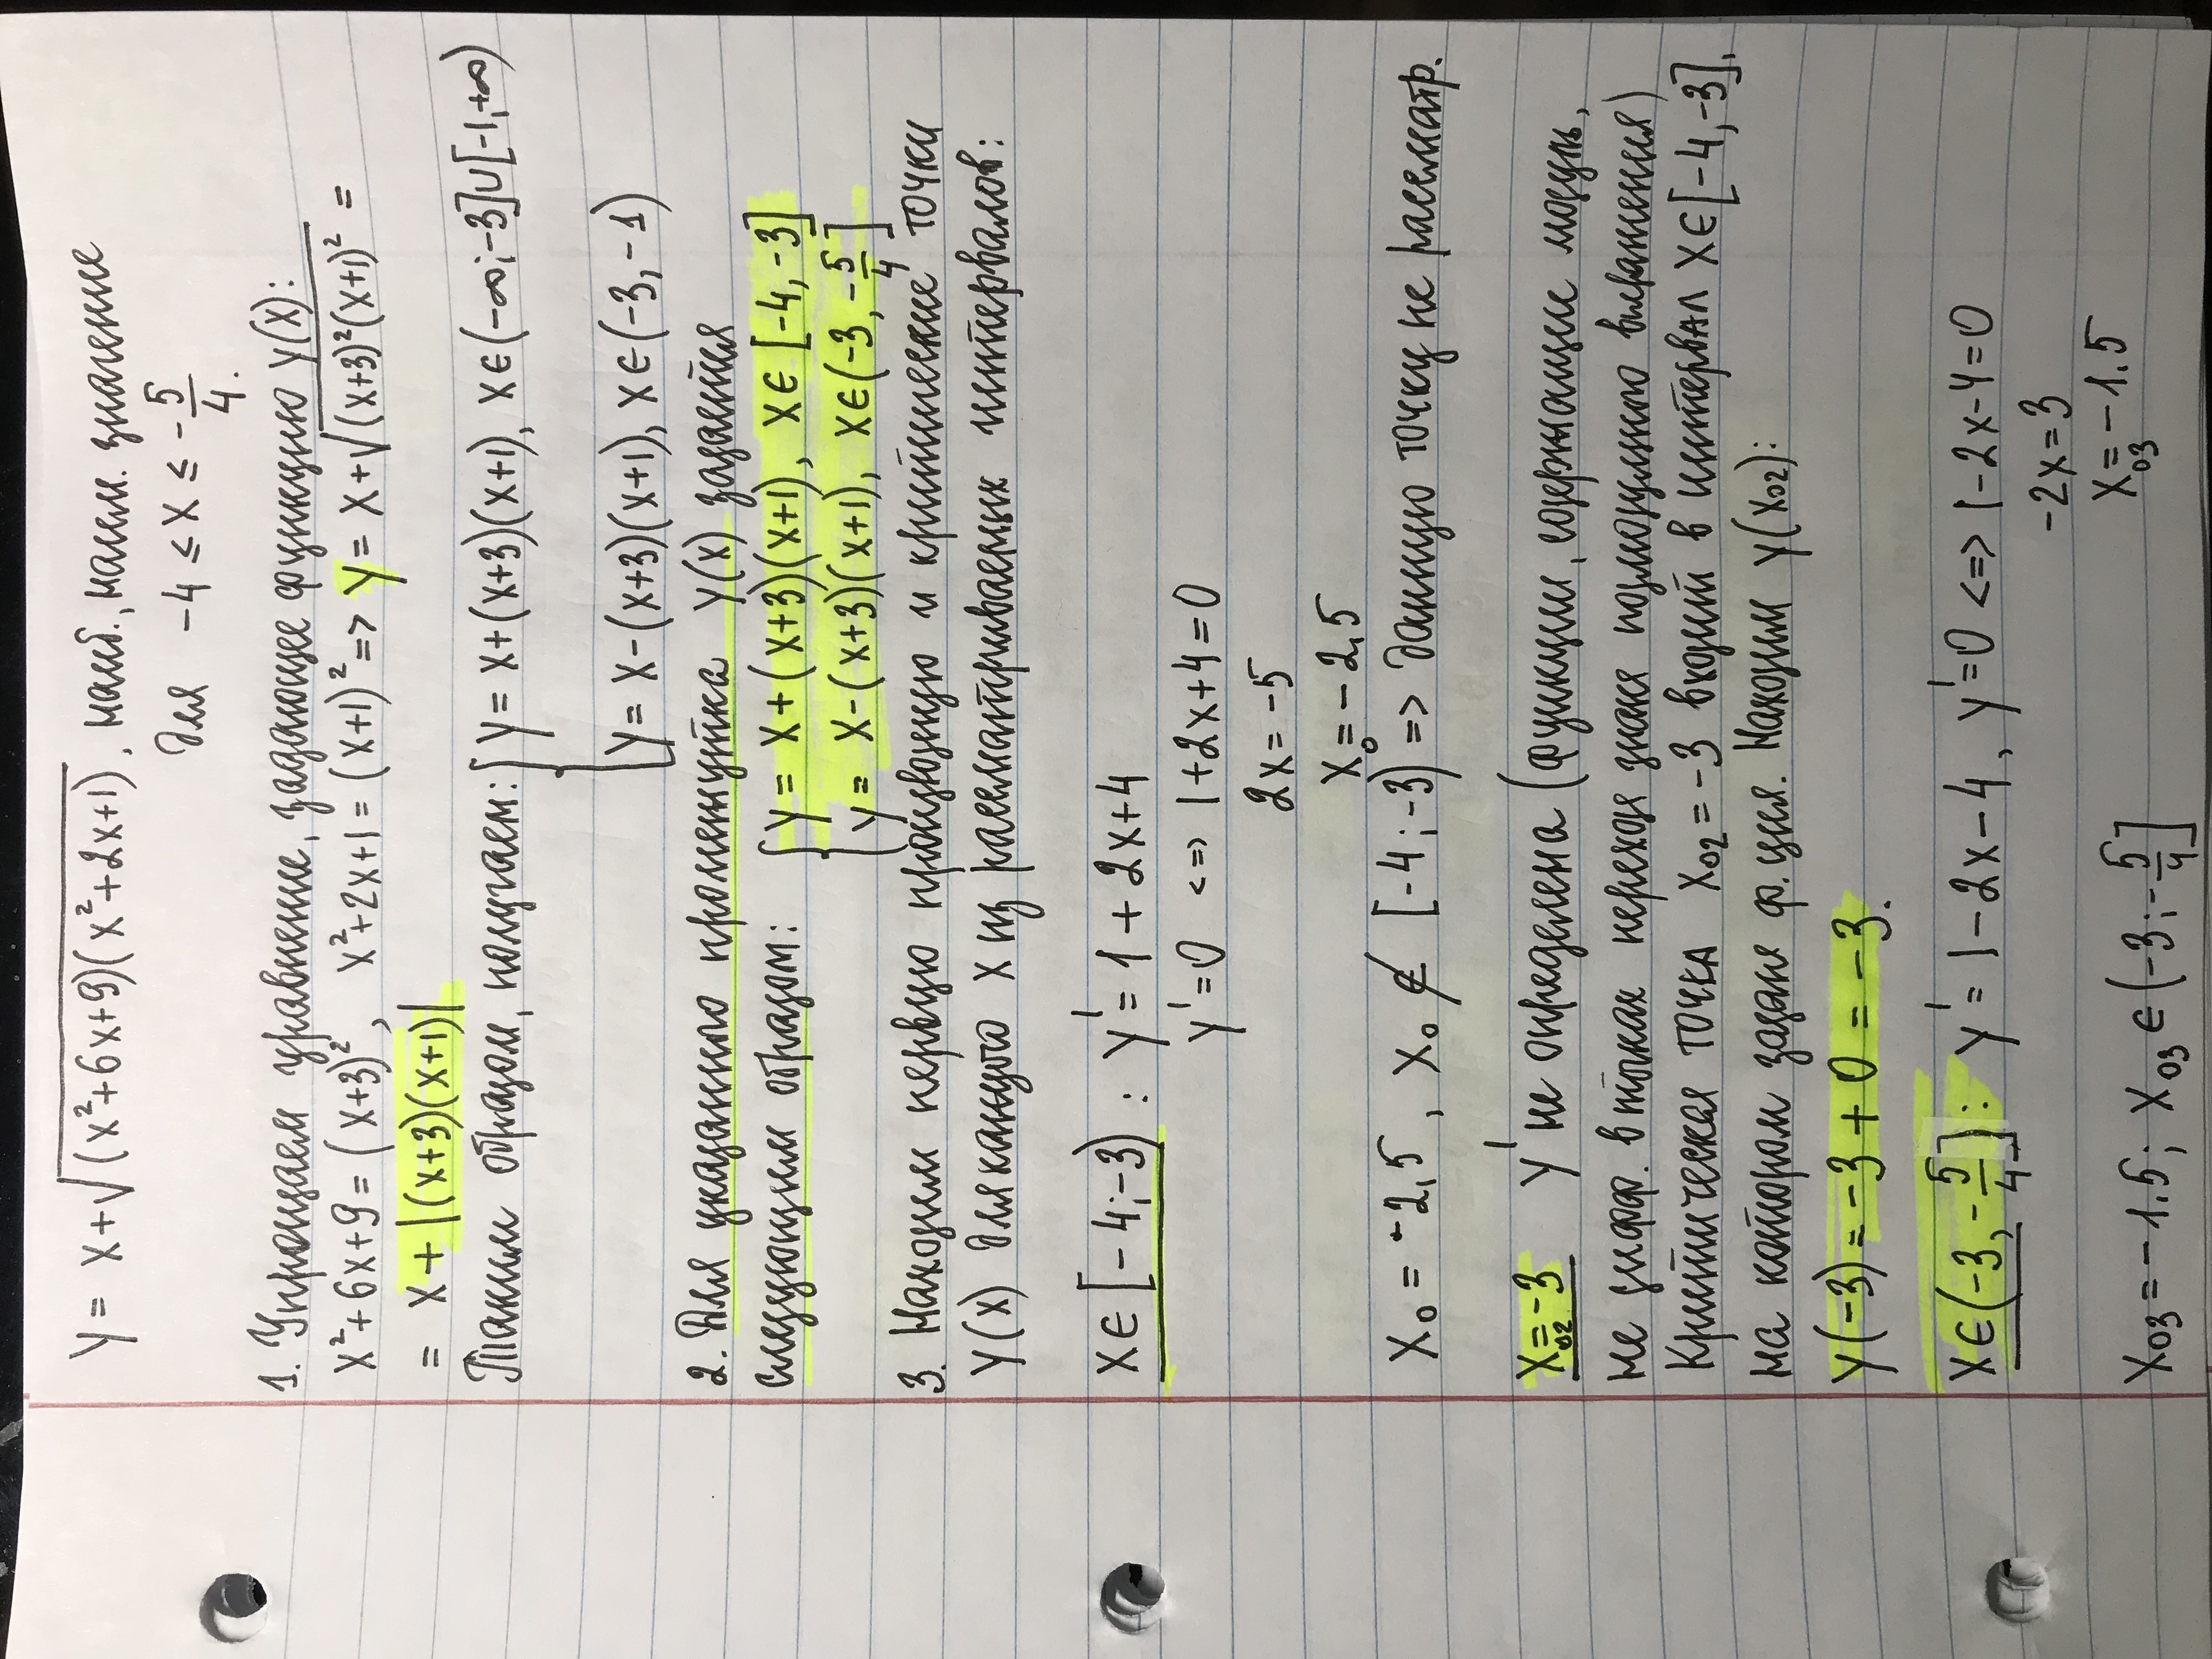 y = x+√(x²+6x+9)(x²+2x+1), наиб., наим. значение
для -4 ≤ x ≤ -5/4.
1. Упрощаем уравнение, задающее функцию y(x):
x²+6x+9 = (x+3)², x²+2x+1 = (x+1)² => y = x+√(x+3)²(x+1)² =
= x+|(x+3)(x+1)|
Таким образом, получаем: { y = x+(x+3)(x+1), x∈(-∞;-3]∪[-1,+∞)
y = x-(x+3)(x+1), x∈(-3,-1)
2. Для указанного промежутка y(x) задаётся
следующим образом: { y = x+(x+3)(x+1), x∈[-4,-3]
y = x-(x+3)(x+1), x∈(-3,-5/4]
3. Находим первую производную и критические точки
y(x) для каждого x из рассматриваемых интервалов:
x∈[-4;-3) : y' = 1+2x+4
y'=0 <=> 1+2x+4=0
2x=-5
x₀=-2,5
x₀=-2,5, x₀ ∉ [-4;-3) => данную точку не рассматр.
x₀₂=-3 y' не определена (функции, содержащие модуль,
не дифф. в точках перехода знака подмодульного выражения)
Критическая точка x₀₂=-3 входит в интервал x∈[-4,-3],
на котором задана ф. ция. Находим y(x₀₂):
y(-3)=-3+0=-3.
x∈(-3,-5/4]: y'=1-2x-4, y'=0 <=> 1-2x-4=0
-2x=3
x₀₃=-1.5
x₀₃=-1.5; x₀₃∈(-3;-5/4]